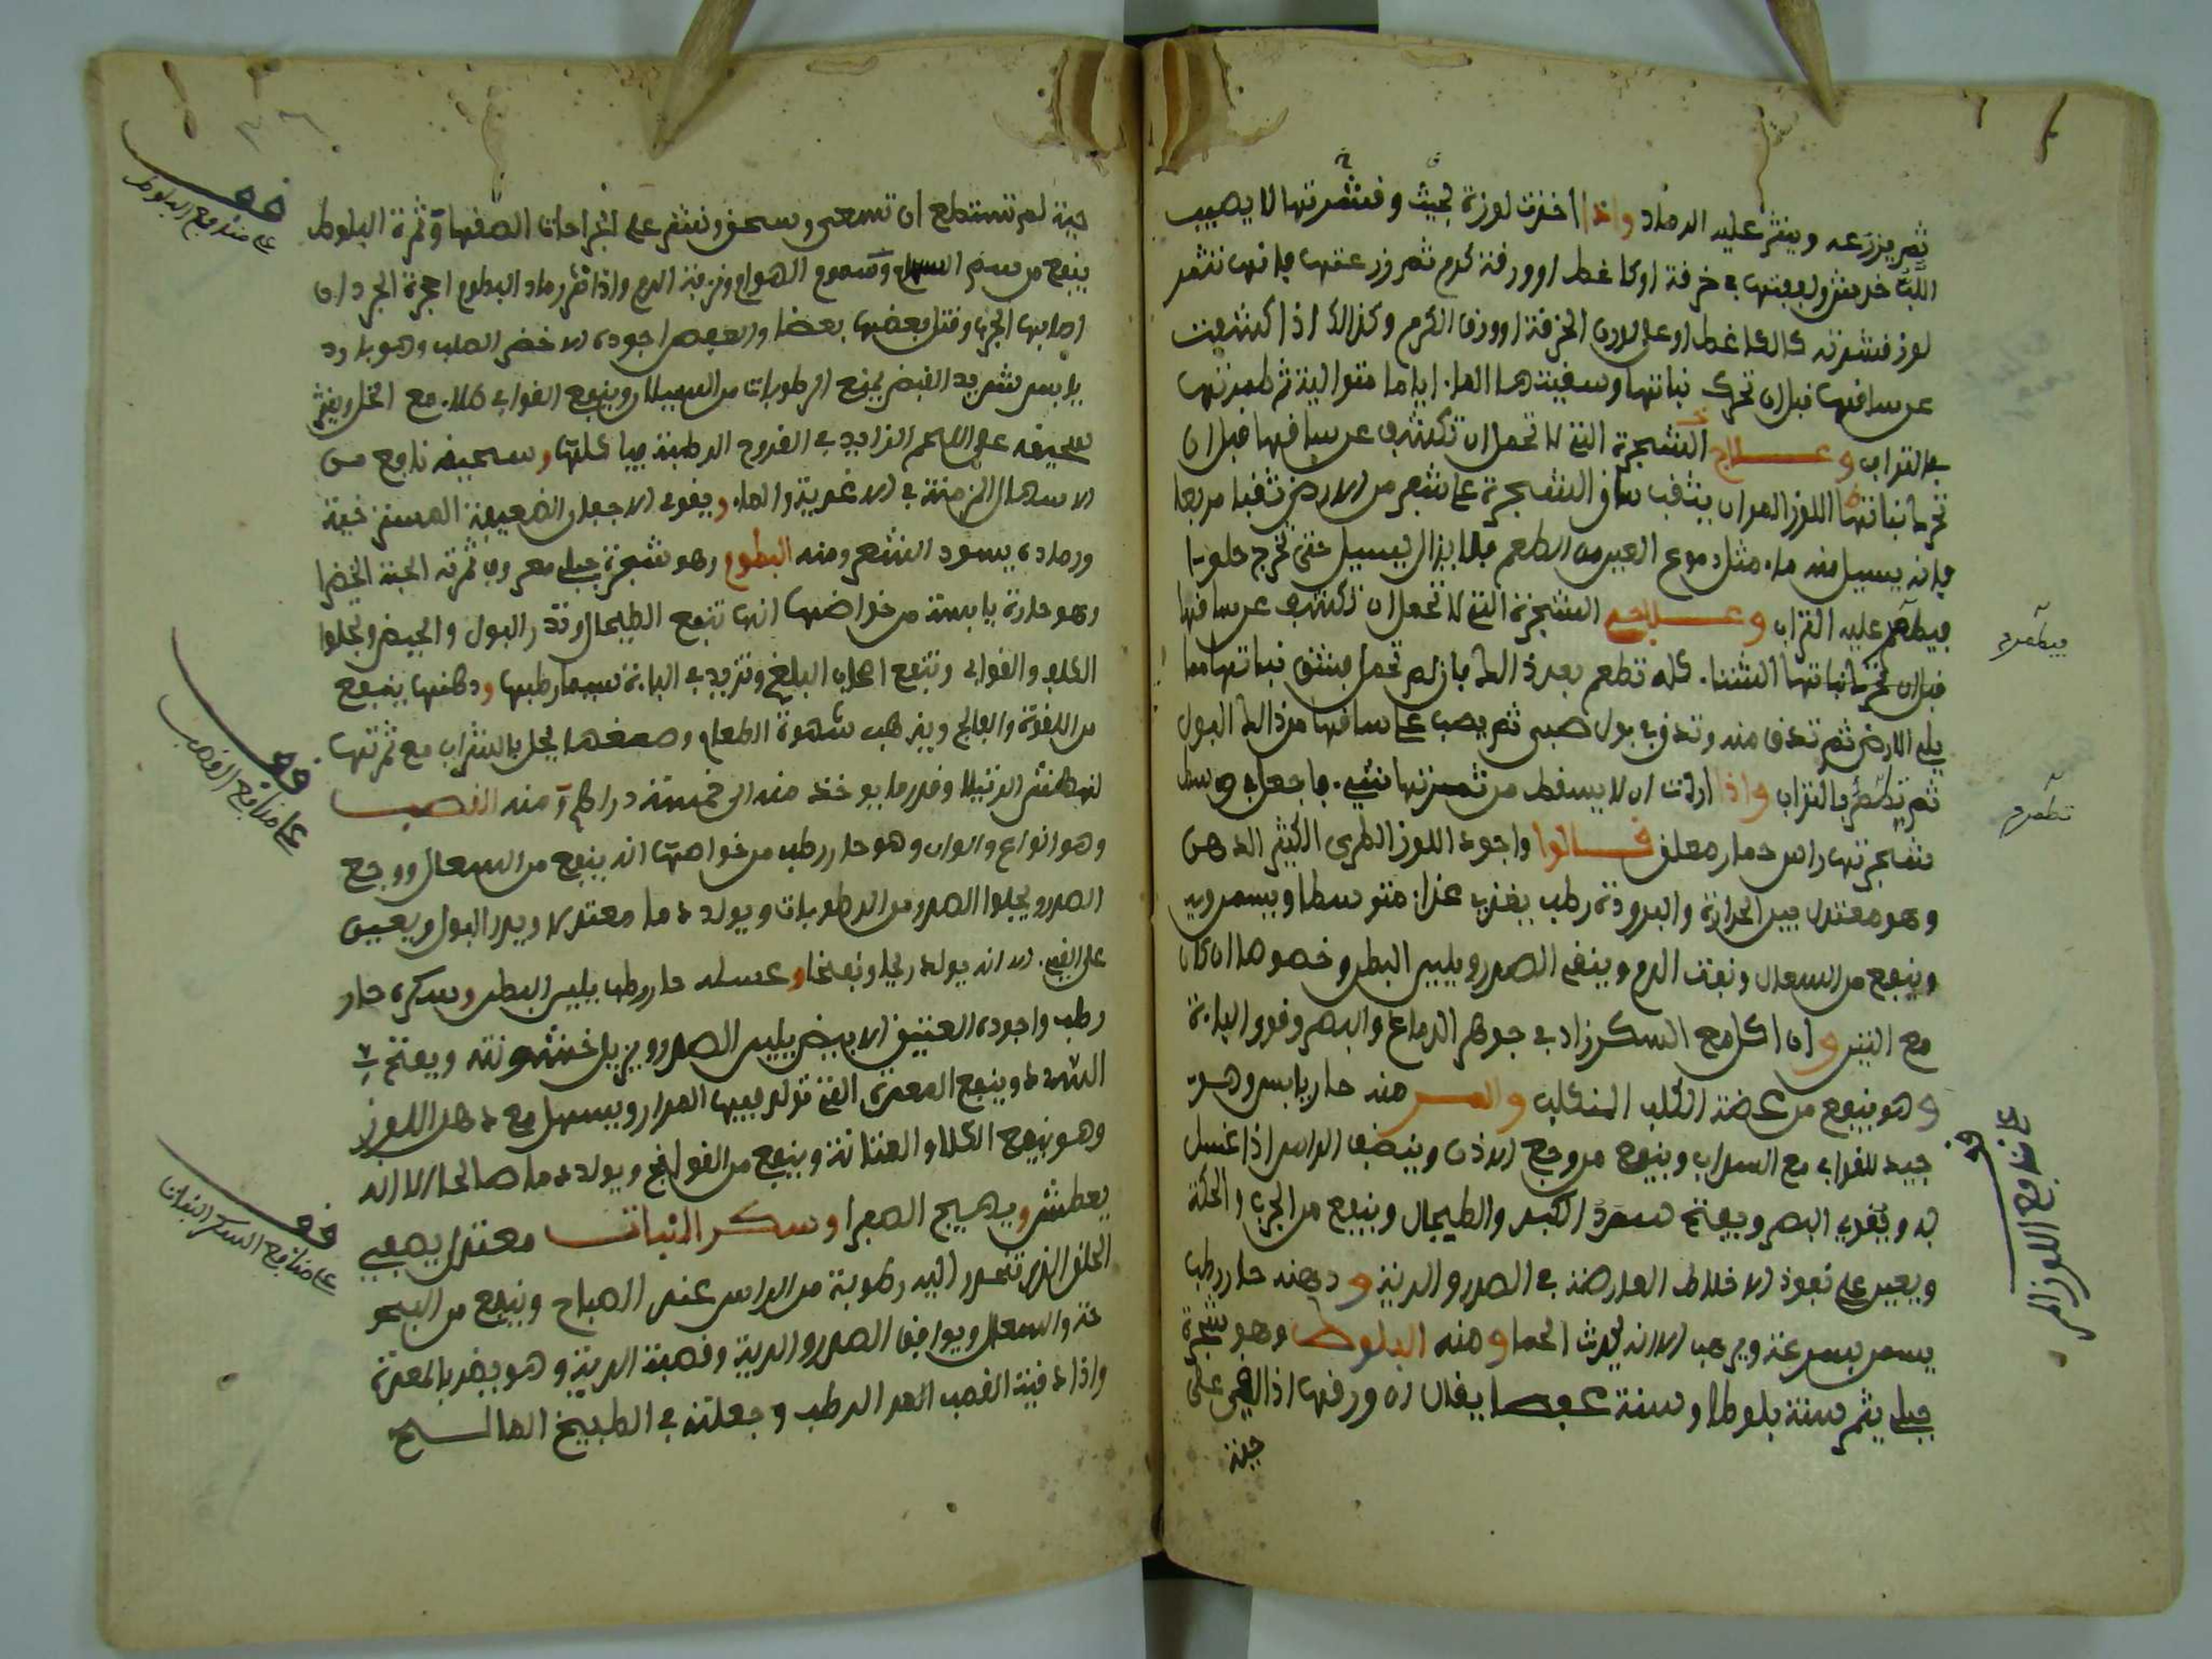 ثم يزرعه وينثر عليه الرماد واذا اخذت لوزة بحيث وقشرتها لا يصيب
اللب خدش ولففتها في خرقة او كاغط او ورقة كرم ثم زرعتها فانها تثمر
لوز قشرته كالكاغط او على لون الخرقة او ورق الكرم وكذالك اذا كشفت
عن ساقها قبل ان تحرك نباتها وسقيتها الماء اياما متوالية ثم طمرتها
بالتراب وعلاج الشجرة التي لا تحمل ان تكشف عن ساقها قبل ان
نباتها اللوز المر ان يثقب ساق الشجرة على شبر من الارض ثقبا مربعا
فانه يسيل منه ماء مثل دموع العين من الطعم فلا يزال يسيل حتى تخرج حلوا
فيطم عليه التراب وعلاج الشجرة التي لا تحمل ان تكشف عن ساقها
قبل ان تحرك نباتها الشتاء كله تطعم بعد ذالك فان لم تحمل فشق نباتها مما
يلي الارض ثم تدق منه وتذوب بول صبي ثم يصب على ساقها من ذالك البول
ثم بالتراب واذا اردت ان لا يسقط من ثمرتها شيء فاجعل في وسط
شجرتها راس حمار معلق قالوا واجود اللوز الطري الكثير الدهن
وهو معتدل بين الحرارة والبرودة رطب يغذي غذاء متوسطا ويسمن
وينفع من السعال ونفث الدم وينقي الصدر ويلين البطن وخصوصا ان كان
مع التين وان اكل مع السكر زاد في جوهر الدماغ والبصر وقوى الباءة
وهو ينفع من عضة الكلب المتكلب والمر منه حار يابس وهو
جيد للقوابي مع الشراب وينفع من وجع الاذن وينظف الراس اذا غسل
به ويقوي البصر ويفتح سدد الكبد والطيحال وينفع من الجرب والحكة
ويعين على نفوذ الاخلاط العارضة في الصدر والرئة ودهنه حار رطب
يسمن بسرعة الا انه يحدث الحما ومنه البلوط وهو شجرة
جبلي يثمر سنة بلوطا وسنة عفصا يقال ان ورقها اذا القي على
حية
فيطمر
تطمر
قف على منافع اللوز المر
حية لم تستطع ان تسعى وسحق ونثر على الجراحات الصقها وثمرة البلوط
ينفع من سم وسموم الهوام ونزف الدم واذا نثر رماد البلوط اجحرة الجرذان
اصابها الجرب وقتل بعضها بعضا والعفص اجوده الاخضر الصلب وهو بارد
يابس شديد القبض يمنع الرطوبات من السيلان وينفع القوابي طلاء مع الخل وينثر
سحيقه على اللحم الزايد في القروح الرطبة فياكلها وسحيقه نافع من
الاسهال المزمنة في الاغدية والماء ويقوي الاجفان الضعيفة المسترخية
ورماده يسود الشعر ومنه البطوم وهو شجرة جبلي معروف ثمرته الحبة الخضرا
وهو حارة يابسة من خواصها انها تنفع الطيحال وتدر البول والحيض وتجلوا
الكلف والقوابي وتنفع اصحاب البلغم وتزيد في الباءة سيما رطبها ودهنها ينفع
من اللقوة والفالج ويذهب شهوة الطعام وصمغها يحل بالشراب مع ثمرتها
لنهش الرتيلا وقدر ما يوخذ منه الى خمسة دراهم ومنه القصب
وهو انواع والوان وهو حار رطب من خواصها انه ينفع من السعال ووجع
الصدر ويجلوا الصدر من الرطوبات ويولد دما معتدلا ويدر البول ويعين
على القيء الا انه يولد ريحا ونفخا وعسله حار رطب يلين البطن وسكره حار
رطب واجوده العتيق الابيض يلين الصدر ويزيل خشونته ويفتح
السدد وينفع المعدة التي تولد فيها المرار ويسهل مع دهن اللوز
وهو ينفع الكلا والمثانة وينفع من القولنج ويولد دما صالحا الا انه
يعطش ويهيج الصفرا وسكر النبات معتدل يصفي
الحلق الذي تنحدر اليه رطوبة من الراس عند الصباح وينفع من البحو
حة والسعال ويوافق الصدر والرية وقصبة الرية وهو يضر بالمعدة
واذا دقيت القصب المر الرطب وجعلته في الطبيخ المالح
قف على منافع البلوط
قف على منافع القصب
قف على منافع السكر النبات